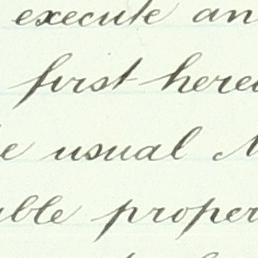 execute an
first here
e usual
ble proper